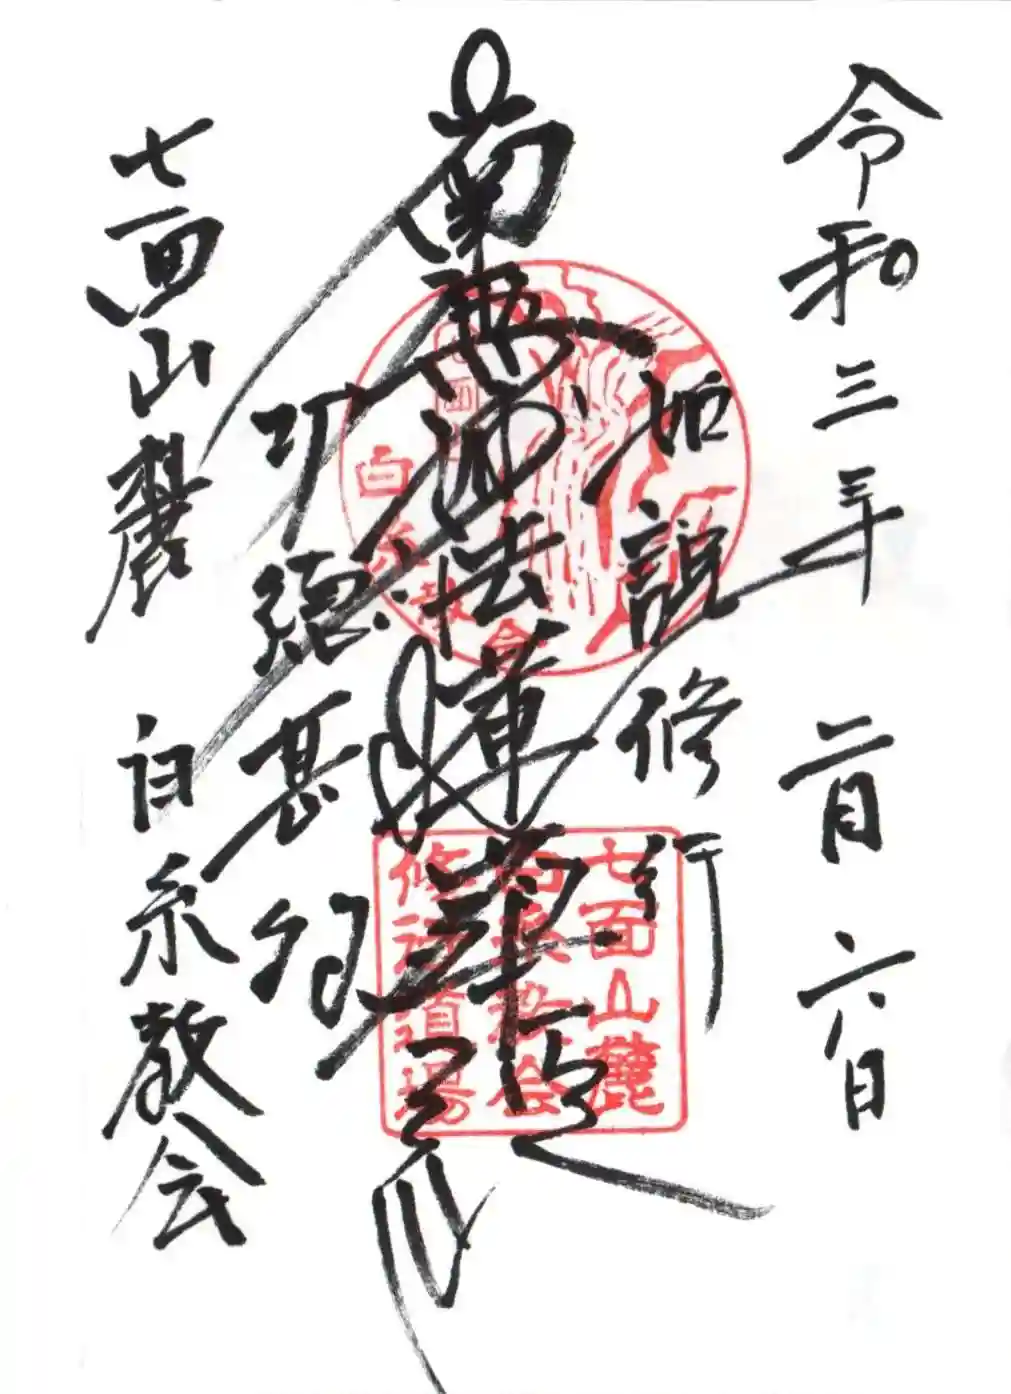 令和三年二月六日
如説修行
南無妙法蓮華経
功徳甚多
七面山麓 白糸教会
白糸教会
七面山麓
白糸教会
修行道場